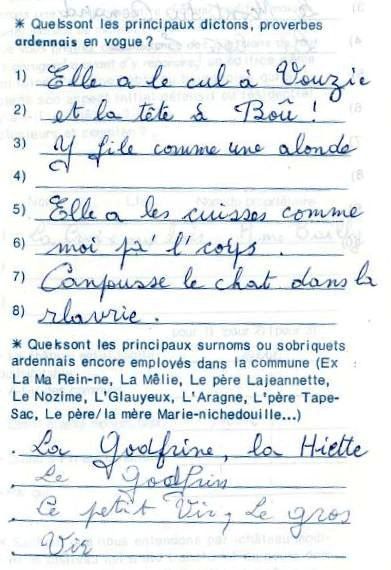 * Quelssont les principaux dictons, proverbes
ardennais en vogue ?
1) Elle a le cul à Vouzie
2) et la tête à Boû !
3) Y file comme une alonde
4)
5) Elle a les cuisses comme
6) moi pa' l' corps.
7) Canpousse le chat dans la
8) rlavrie.
* Quelssont les principaux surnoms ou sobriquets
ardennais encore employés dans la commune (Ex :
La Ma Rein-ne, La Mêlie, Le père Lajeannette,
Le Nozime, L'Glauyeux, L'Aragne, L'père Tape-
Sac, Le père/la mère Marie-nichedouille...)
. La Godfrine, la Hiette
. Le Godfrin
. Le petit Vir, Le gros
. Vir